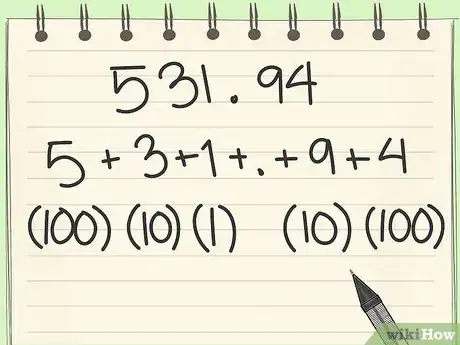 531.94
5+3+1+.+9+4
(100) (10) (1) (10) (100)
wikiHow